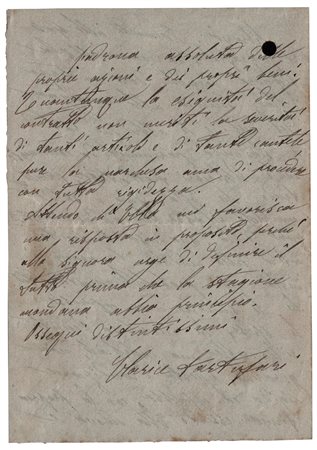 padrona assoluta delle
proprie azioni e dei proprî beni.
Quantunque la esiguità del
contratto non meriti la severità
di tanti articoli e di tante cautele
pur la marchesa ama di procedere
con tutta rigidezza.
Attendo ch'Ella mi favorisca
una risposta in proposito, perchè
alla signora urge di definire il
tutto prima che la stagione
mondana abbia principio.
Ossequi distintissimi
Clarice Tartufari